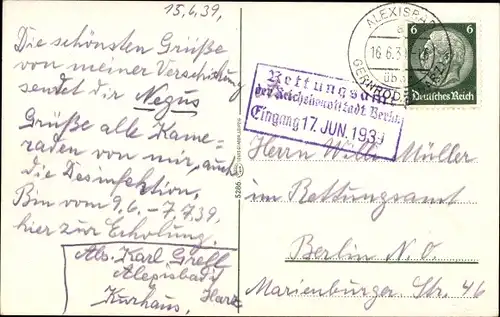 15.6.39.
Die schönsten Grüße
von meiner Verschickung
sendet dir Negus
Grüße alle Kame-
raden von mir, auch
die Desinfektion,
Bin vom 9.6. - 7.7.39.
hier zur Erholung.
Abs. Karl Grell
Alexisbad
Kurhaus, Harz
5286
ALEXISBAD
16.6.39
über
GERNRODE
6 6
Deutsches Reich
Rettungsamt
der Reichshauptstadt Berlin
Eingang 17. JUN. 1939
Herrn Willi Müller
im Rettungsamt
Berlin N.O.
Marienburger Str. 46